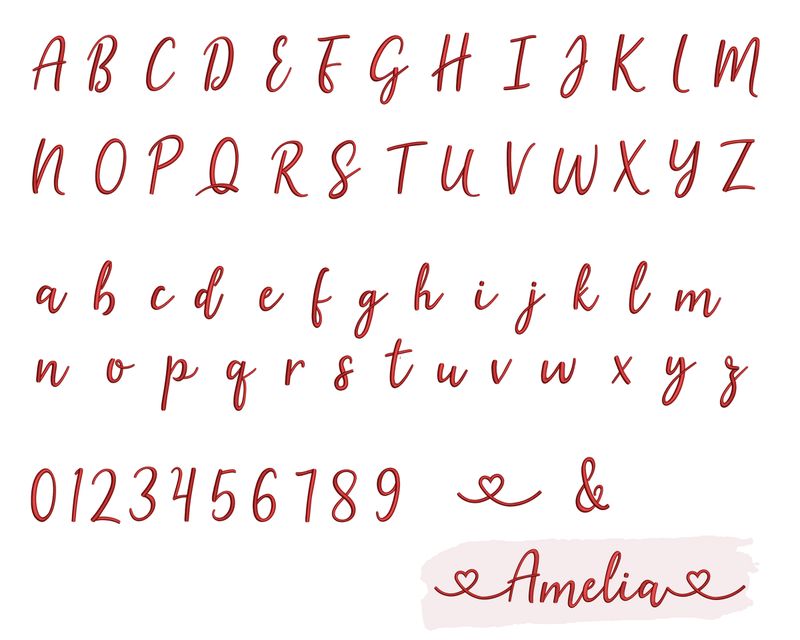 A B C D E F G H I J K L M
N O P Q R S T U V W X Y Z
a b c d e f g h i j k l m
n o p q r s t u v w x y z
0123456789 &
Amelia